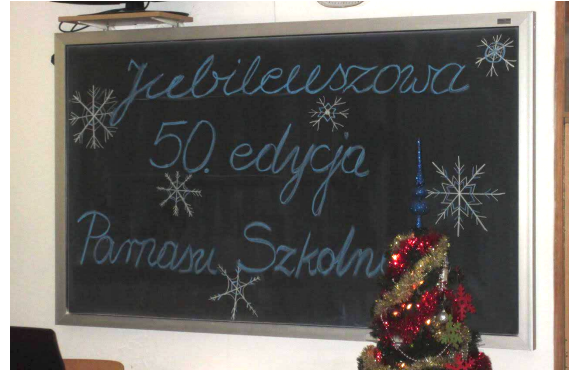 Jubileuszowa
50. edycja
Parnasu Szkoln